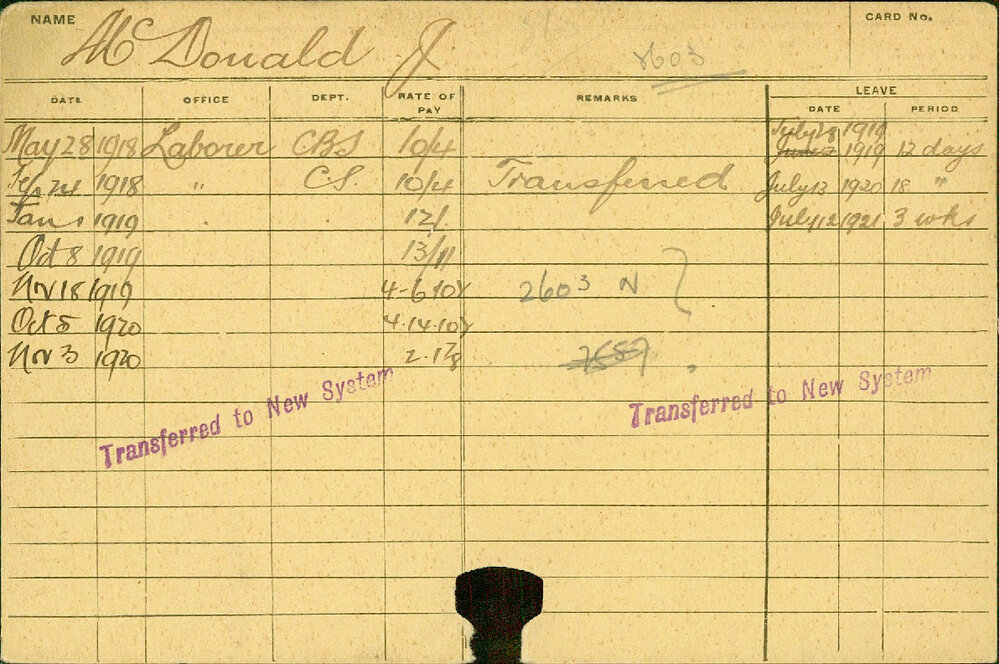 NAME McDonald J 8603 CARD No.
DATE OFFICE DEPT. RATE OF PAY REMARKS LEAVE
DATE PERIOD
July 28 1919
May 28 1918 Laborer CBS 10/4 1919 12 days
Sep 24 1918 " C.S. 10/4 Transferred July 13 1920 18 "
Jan 1 1919 12/. July 12 1921 3 wks
Oct 8 1919 13/11
Nov 18 1919 4-6-10½ 2603 N
Oct 5 1920 4.14.10½
Nov 3 1920
Transferred to New System
Transferred to New System